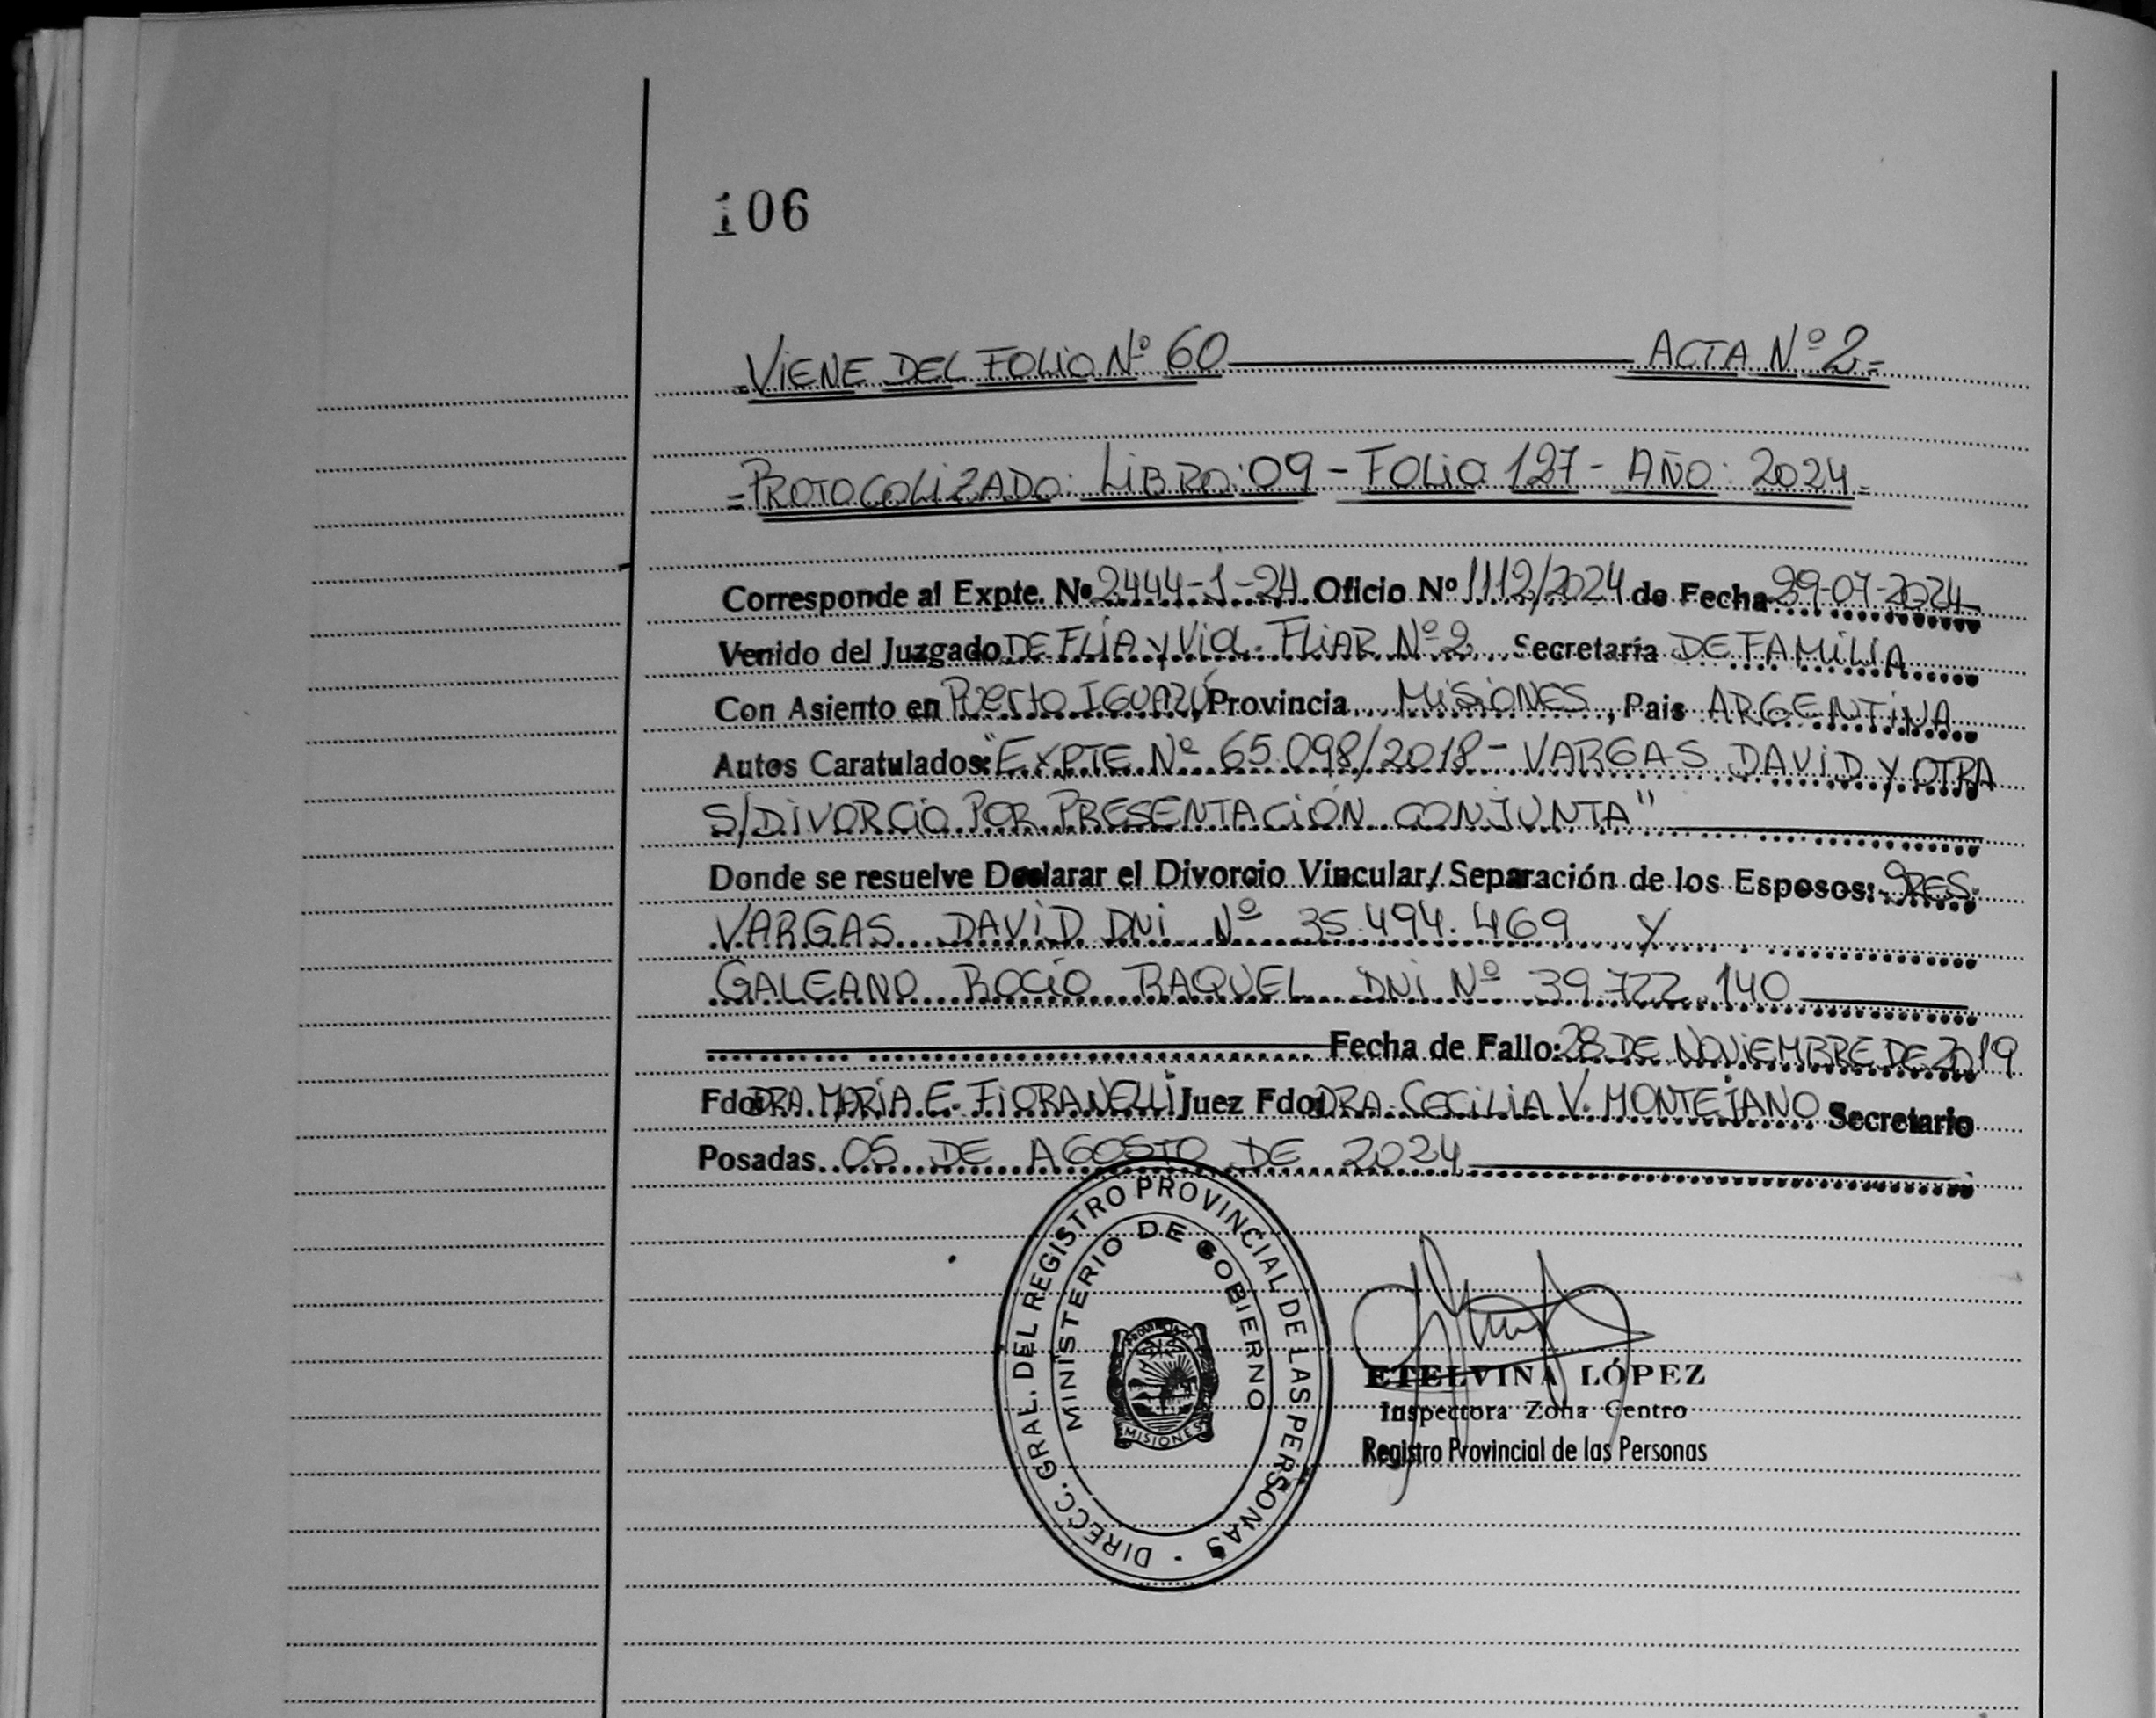 106
=VIENE DEL FOLIO Nº 60 ACTA Nº 2=
=PROTOCOLIZADO: LIBRO: 09 - FOLIO 127 - AÑO: 2024=
Corresponde al Expte. Nº 2444-1-24 Oficio Nº 1112/2024 de Fecha 29-07-2024
Venido del Juzgado DE FLIA Y VIOL. FLIAR Nº 2 Secretaría DE FAMILIA
Con Asiento en Puerto IGUAZÚ, Provincia MISIONES, Pais ARGENTINA
Autos Caratulados: "EXPTE Nº 65.098/2018 - VARGAS DAVID Y OTRA
S/DIVORCIO POR PRESENTACIÓN CONJUNTA"
Donde se resuelve Declarar el Divorcio Vincular/Separación de los Esposos: SRES.
VARGAS DAVID DNI Nº 35.494.469 Y
GALEANO ROCIO RAQUEL DNI Nº 39.722.140
Fecha de Fallo: 28 DE NOVIEMBRE DE 2019
Fdo: DRA. MARÍA E. FIORANELLI Juez Fdo: DRA. CECILIA V. MONTEJANO Secretario
Posadas 05 DE AGOSTO DE 2024
DIRECC. GRAL. DEL REGISTRO PROVINCIAL DE LAS PERSONAS
MINISTERIO DE GOBIERNO
PROVINCIA DE
MISIONES
ETELVINA LÓPEZ
Inspectora Zona Centro
Registro Provincial de las Personas